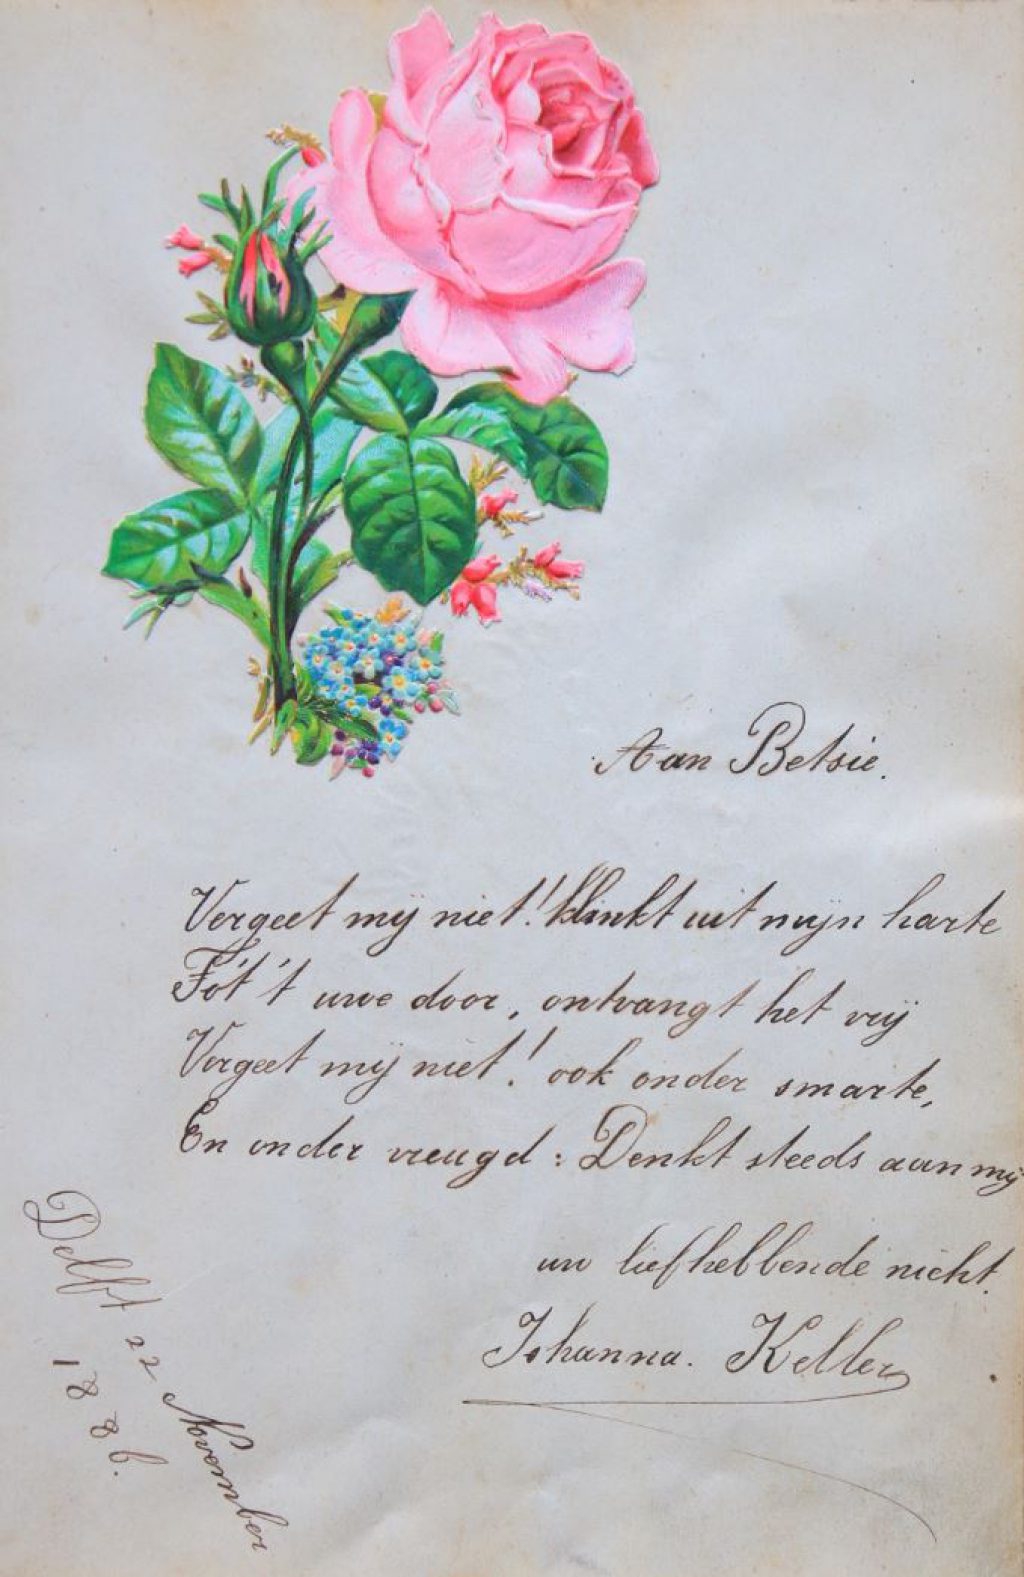 Aan Betsie.
Vergeet mij niet! klinkt uit mijn harte
Tót 't uwe door, ontvangt het vrij
Vergeet mij niet! ook onder smarte,
En onder vreugd: Denkt steeds aan mij
uw liefhebbende nicht.
Johanna. Keller
Delft 22 November
1886.